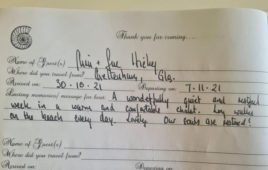 Thank you for coming....
Name of Guest(s) & Sue
Where did you travel from? Cheltenham, Glos.
Arrived on: 30-10-21 Departing on: 7-11-21
Lasting memories/ message for host: A wonderfully quiet and
week in a warm and comfortable chalet. Log walks
on the beach every day. Lovely. Our souls are restored!
Name of Guest(s)
Where did you travel from?
Arrived on: Departing on: